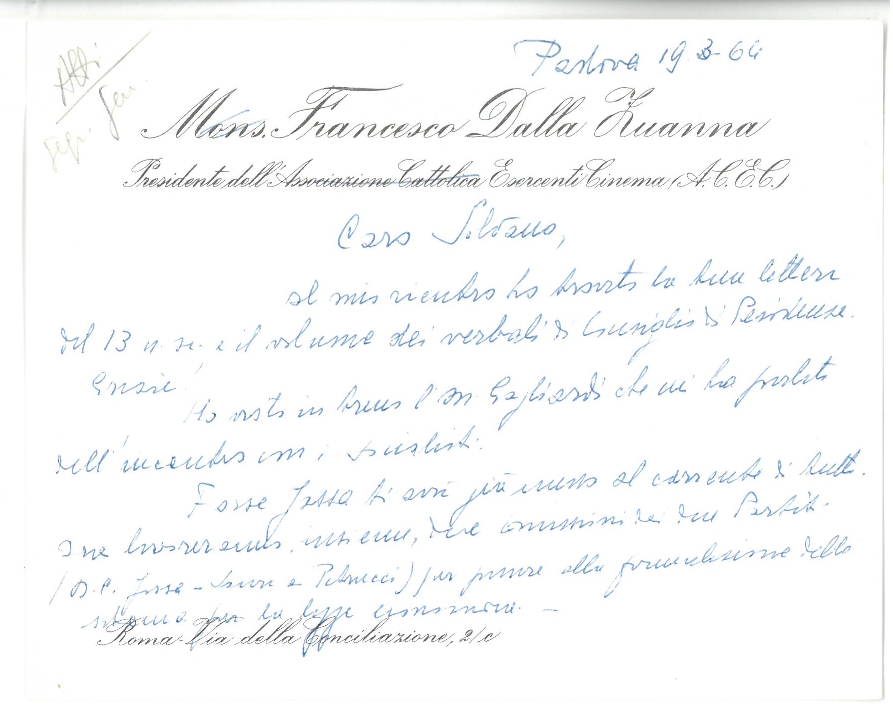 Atti
Segr. Gen.
Padova 19 3 64
Mons. Francesco Dalla Zuanna
Presidente dell'Associazione Cattolica Esercenti Cinema (A.C.E.C.)
Caro Silvano,
al mio rientro ho trovato la tua lettera
del 13 u. sc. e il volume dei verbali di Consiglio di Presidenza.
Grazie!
Ho visto in treno l'on. Gagliardi che mi ha parlato
dell'incontro con i socialisti.
Forse Jossa ti avrà già messo al corrente di tutto.
Ora lavoreranno, insieme, due commissioni dei due Partiti
(D.C. Jossa - e Petrucci) per passare alla formulazione dello
schema per la legge
Roma - Via della Conciliazione, 2/c